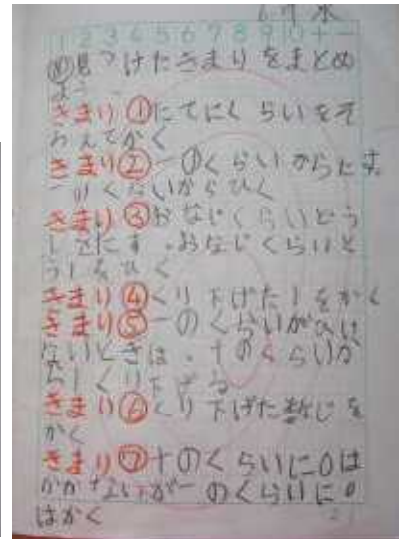 6.9 水
1 2 3 4 5 6 7 8 9 10 + -
め見つけたきまりをまとめ
よう。
きまり①たてにくらいをそ
ろえてかく
きまり②一のくらいからたす。
一のくらいからひく
きまり③おなじくらいどう
しをたす。おなじくらいど
うしをひく
きまり④くり下げた1をかく
きまり⑤一のくらいがひけ
ないときは、十のくらいか
ら1くり下げる
きまり⑥くり下げた数じを
かく
きまり⑦十のくらいに0は
かかないが一のくらいに0
はかく